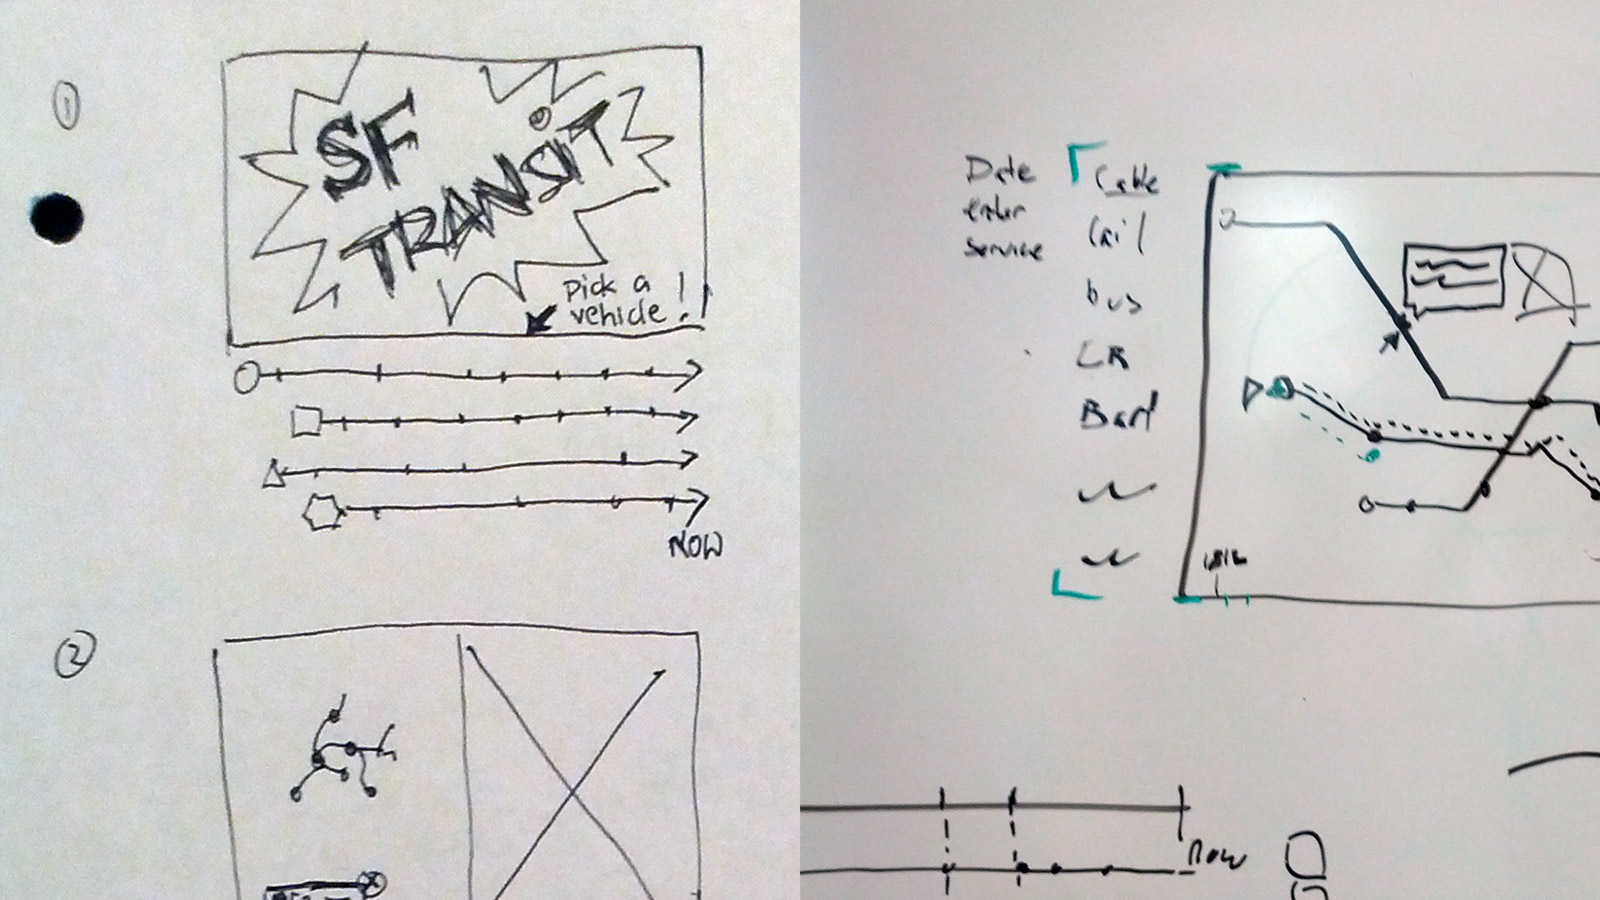 1
SF
TRANSIT
Pick a
vehicle!
NOW
2
Date
enter
service
Cable
rail
bus
LR
Bart
now